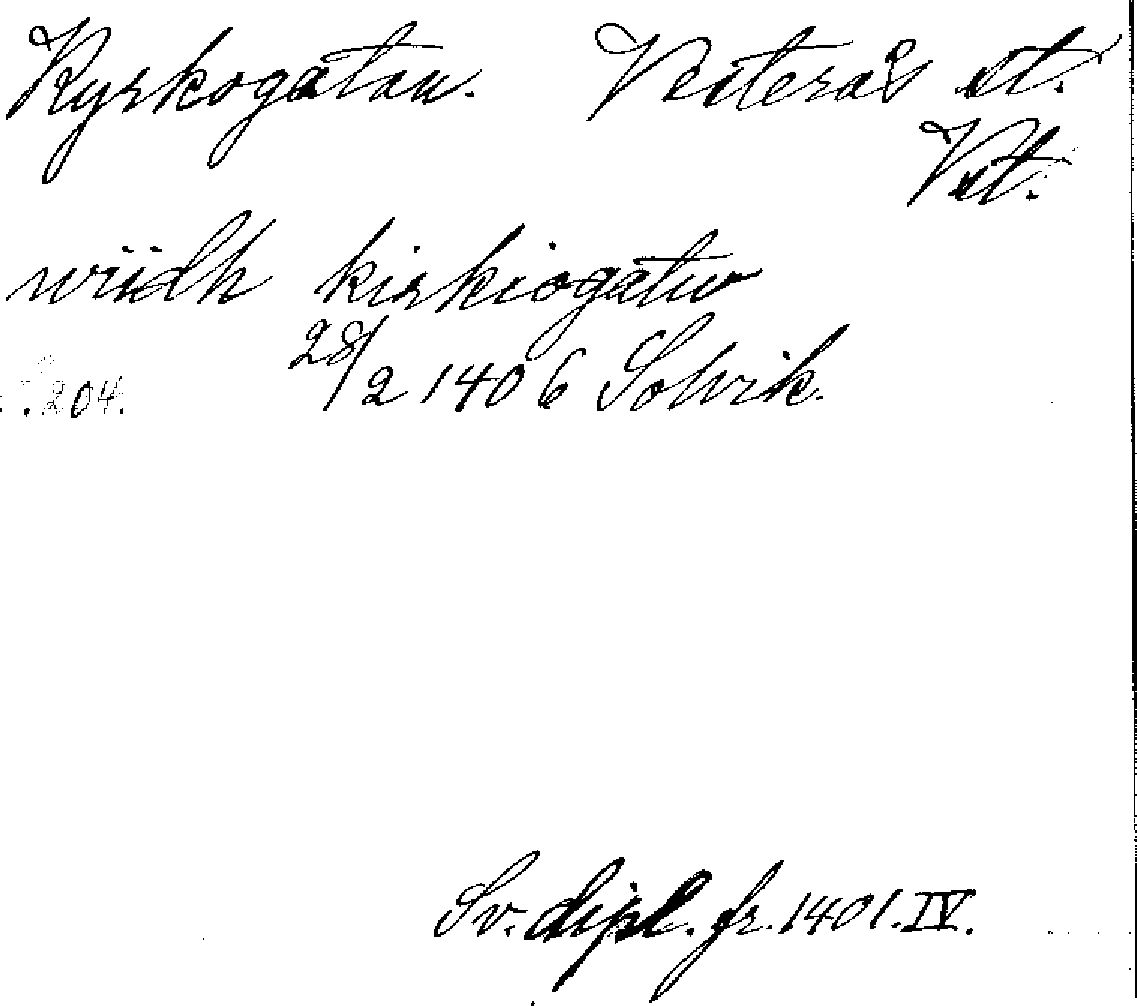 Kyrkogatan. Vesterås st.
Vst.
wiidh kirkiogatw
28/2 1406 Solvik.
204.
Sv. dipl. fr. 1401. IV.